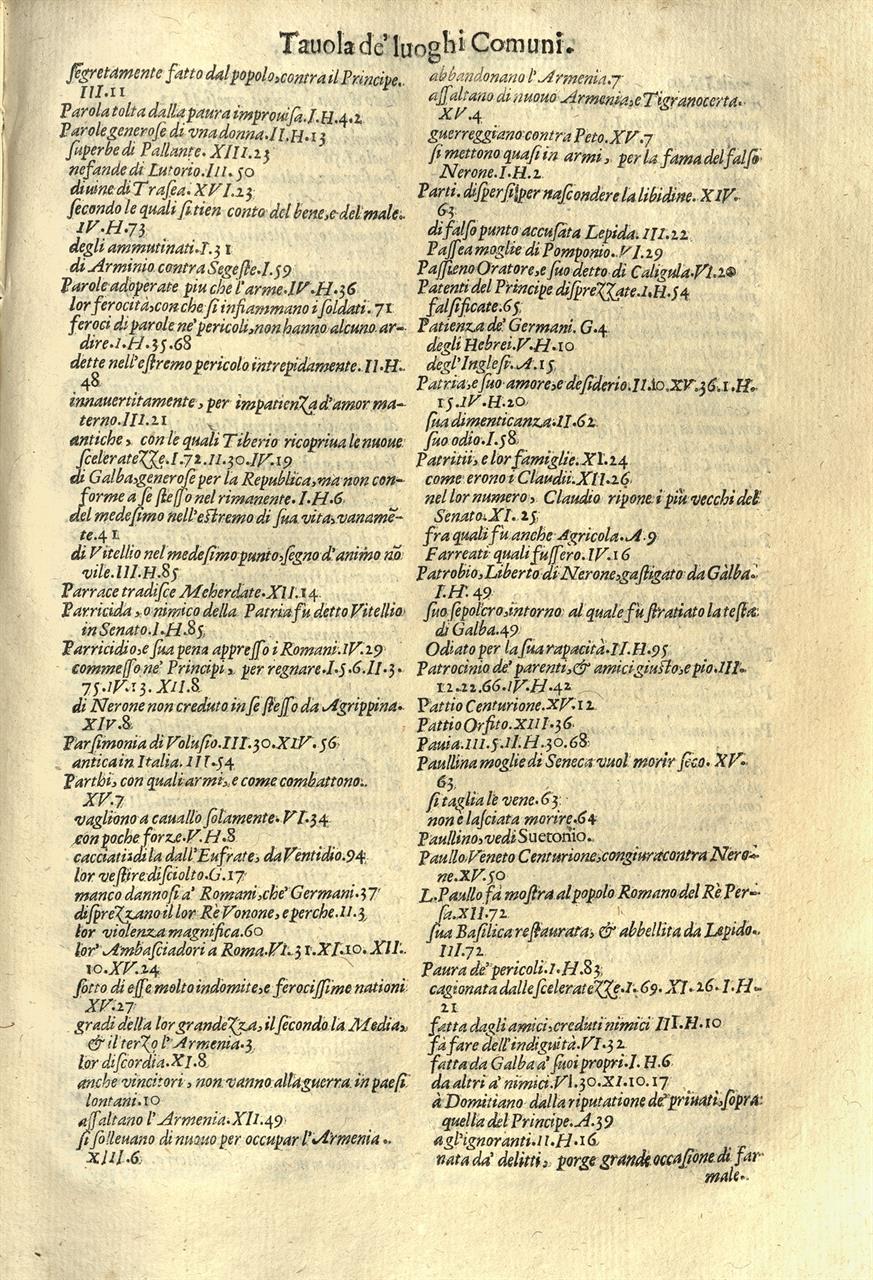 Tauola de' luoghi Comuni.
segretamente fatto dal popolo, contra il Principe.
III.11
Parola tolta dalla paura improuisa.I.H.4.2
Parole generose di vna donna.II.H.13
superbe di Pallante. XIII.23
nefande di Lutorio.III.50
diuine di Trasea.XVI.23
secondo le quali si tien conto del bene, e del male.
IV.H.73
degli ammutinati.I.31
di Arminio contra Segeste.I.59
Parole adoperate piu che l'arme.IV.H.36
lor ferocità, con che si infiammano i soldati.71
feroci di parole ne' pericoli, non hanno alcuno ar-
dire.I.H.35.68
dette nell'estremo pericolo intrepidamente.II.H.
48
innauertitamente, per impatienza d'amor ma-
terno.III.21
antiche, con le quali Tiberio ricopriua le nuoue
sceleratezze.I.72.II.30.IV.19
di Galba, generose per la Republica, ma non con-
forme a se stesso nel rimanente.I.H.6
del medesimo nell'estremo di sua vita, vanamē-
te.41
di Vitellio nel medesimo punto, segno d'animo nō
vile.III.H.85
Parrace tradisce Meherdate.XII.14
Parricida, o nimico della Patria fu detto Vitellio
in Senato.I.H.85
Parricidio, e sua pena appresso i Romani.IV.29
commesso ne' Principi, per regnare.I.5.6.II.3.
75.IV.13.XII.8
di Nerone non creduto in se stesso da Agrippina.
XIV.8
Parsimonia di Volusio.III.30.XIV.56
antica in Italia.III.54
Parthi, con quali armi, e come combattono.
XV.7
vagliono a cauallo solamente.VI.34
con poche forze.V.H.8
cacciati di la dall'Eufrate, da Ventidio.94
lor vestire disciolto.G.17
manco dannosi a' Romani, che' Germani.37
disprezzano il lor Rè Vonone, e perche.II.3
lor violenza magnifica.60
lor' Ambasciadori a Roma.VI.31.XI.10.XII.
10.XV.24
sotto di esse molto indomite, e ferocissime nationi
XV.27
gradi della lor grandezza, il secondo la Media,
& il terzo l'Armenia.3
lor discordia.XI.8
anche vincitori, non vanno alla guerra in paesi
lontani.10
assaltano l'Armenia.XII.49
si solleuano di nuouo per occupar l'Armenia.
XIII.6
abbandonano l'Armenia.7
assaltano di nuouo Armenia, e Tigranocerta.
XV.4
guerreggiano contra Peto.XV.7
si mettono quasi in armi, per la fama del falso
Nerone.I.H.2
Parti. dispersi per nascondere la libidine. XIV.
63
di falso punto accusata Lepida.III.22
Passea moglie di Pomponio.VI.29
Passieno Oratore, e suo detto di Caligula.VI.20
Patenti del Principe disprezzate.I.H.54
falsificate.65
Patienza de' Germani. G.4
degli Hebrei.V.H.10
degl'Inglesi.A.15
Patria, e suo amore, e desiderio.II.10.XV.36.I.H.
15.IV.H.20
sua dimenticanza.II.62
suo odio.I.58
Patritii, e lor famiglie.XI.24
come erono i Claudii.XII.26
nel lor numero, Claudio ripone i più vecchi del
Senato.XI.25
fra quali fù anche Agricola.A.9
Farreati quali fussero.IV.16
Patrobio, Liberto di Nerone, gastigato da Galba.
I.H.49
suo sepolcro, intorno al quale fù stratiato la testa
di Galba.49
Odiato per la sua rapacità.II.H.95
Patrocinio de' parenti, & amici giusto, e pio.III.
12.22.66.IV.H.42
Pattio Centurione.XV.12
Pattio Orfito.XIII.36
Pauia.III.5.II.H.30.68
Paullina moglie di Seneca vuol morir seco. XV.
63
si taglia le vene.63
non è lasciata morire.64
Paullino, vedi Suetonio.
Paullo Veneto Centurione, congiura contra Nero-
ne.XV.50
L.Paullo fà mostra al popolo Romano del Rè Per-
sa.XII.72
sua Basilica restaurata, & abbellita da Lepido.
III.72
Paura de' pericoli.I.H.83
cagionata dalle sceleratezze.I.69.XI.26.I.H.
21
fatta dagli amici, creduti nimici III.H.10
fà fare dell'indignità.VI.32
fatta da Galba a' suoi propri.I.H.6
da altri a' nimici.VI.30.XI.10.17
à Domitiano dalla riputatione de' priuati, sopra
quella del Principe.A.39
a gl'ignoranti.II.H.16
nata da' delitti, porge grande occasione di far
male.